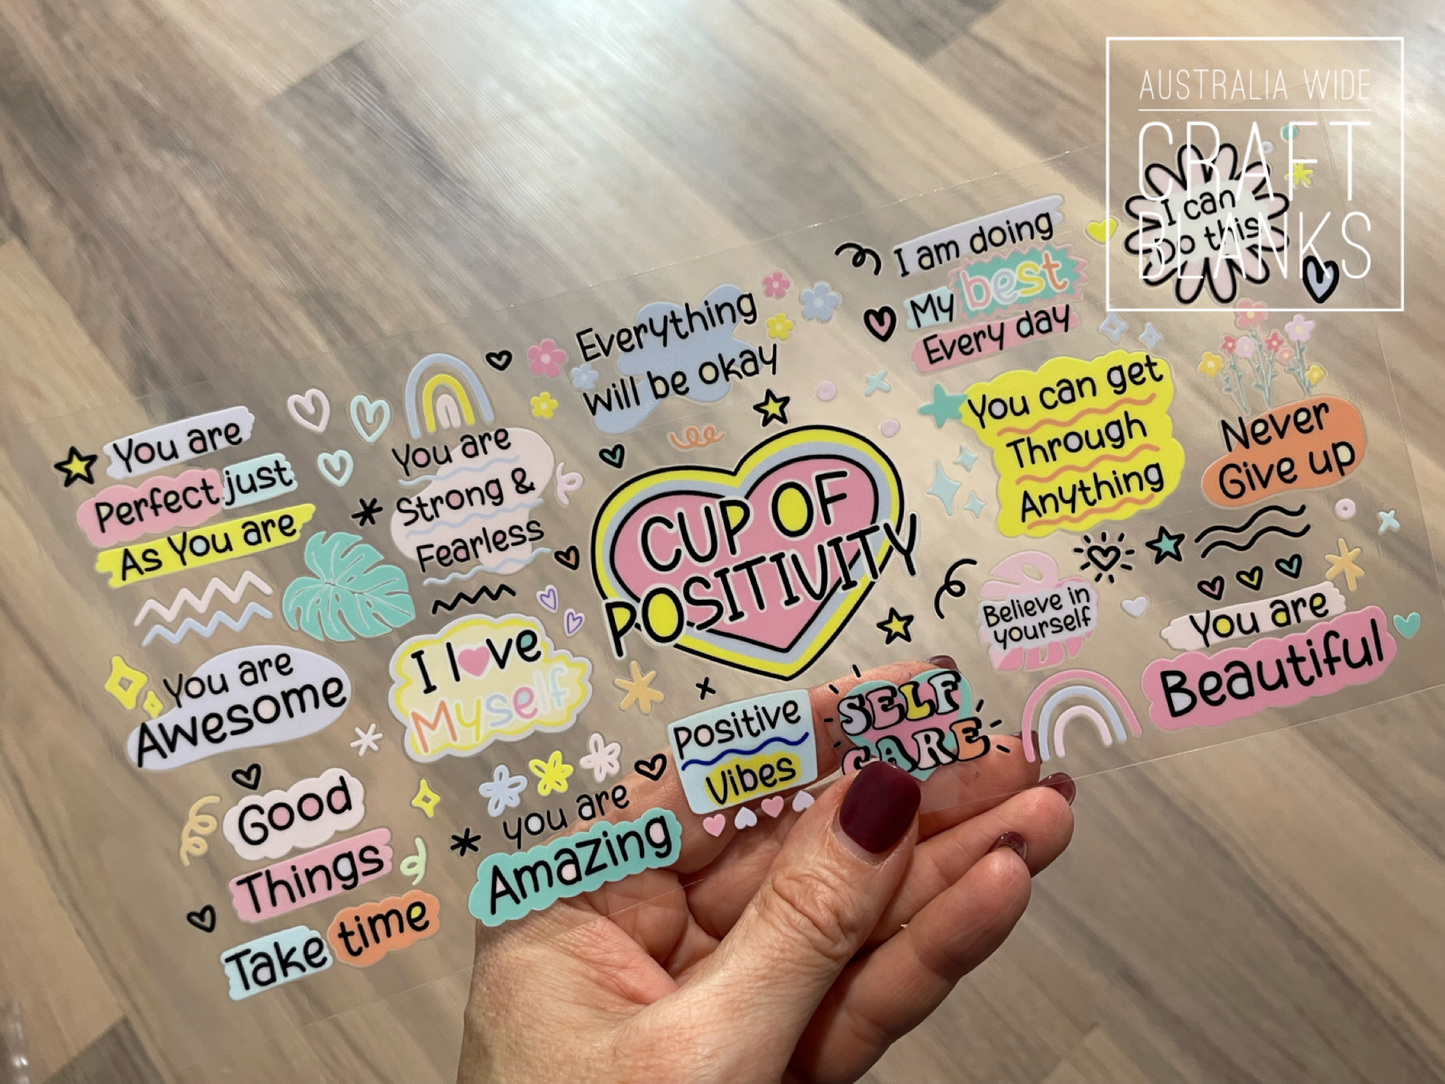 AUSTRALIA WIDE
CRAFT
BLANKS
I can
Do this
I am doing
My best
Every day
Everything
Will be okay
You are
Perfect just
As You are
You are
Strong &
Fearless
CUP OF
POSITIVITY
You can get
Through
Anything
Never
Give up
Believe in
yourself
You are
Beautiful
You are
Awesome
I love
Myself
Positive
Vibes
SELF
CARE
Good
Things
Take time
you are
Amazing